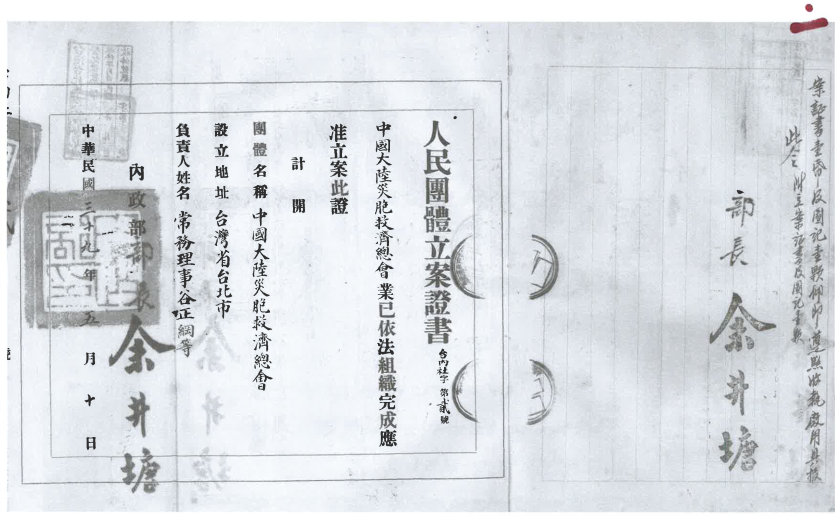 案證書壹昏及圖記壹顆仰即遵照將
此令 附立案證書及圖記壹顆
部長 余井塘
人民團體立案證書
台內社字第貳號
中國大陸災胞救濟總會業已依法組織完成應
准立案此證
計開
團體名稱 中國大陸災胞救濟總會
設立地址 台灣省台北市
負責人姓名 常務理事谷正綱等
內政部部長 余井塘
中華民國三十九年五月十日